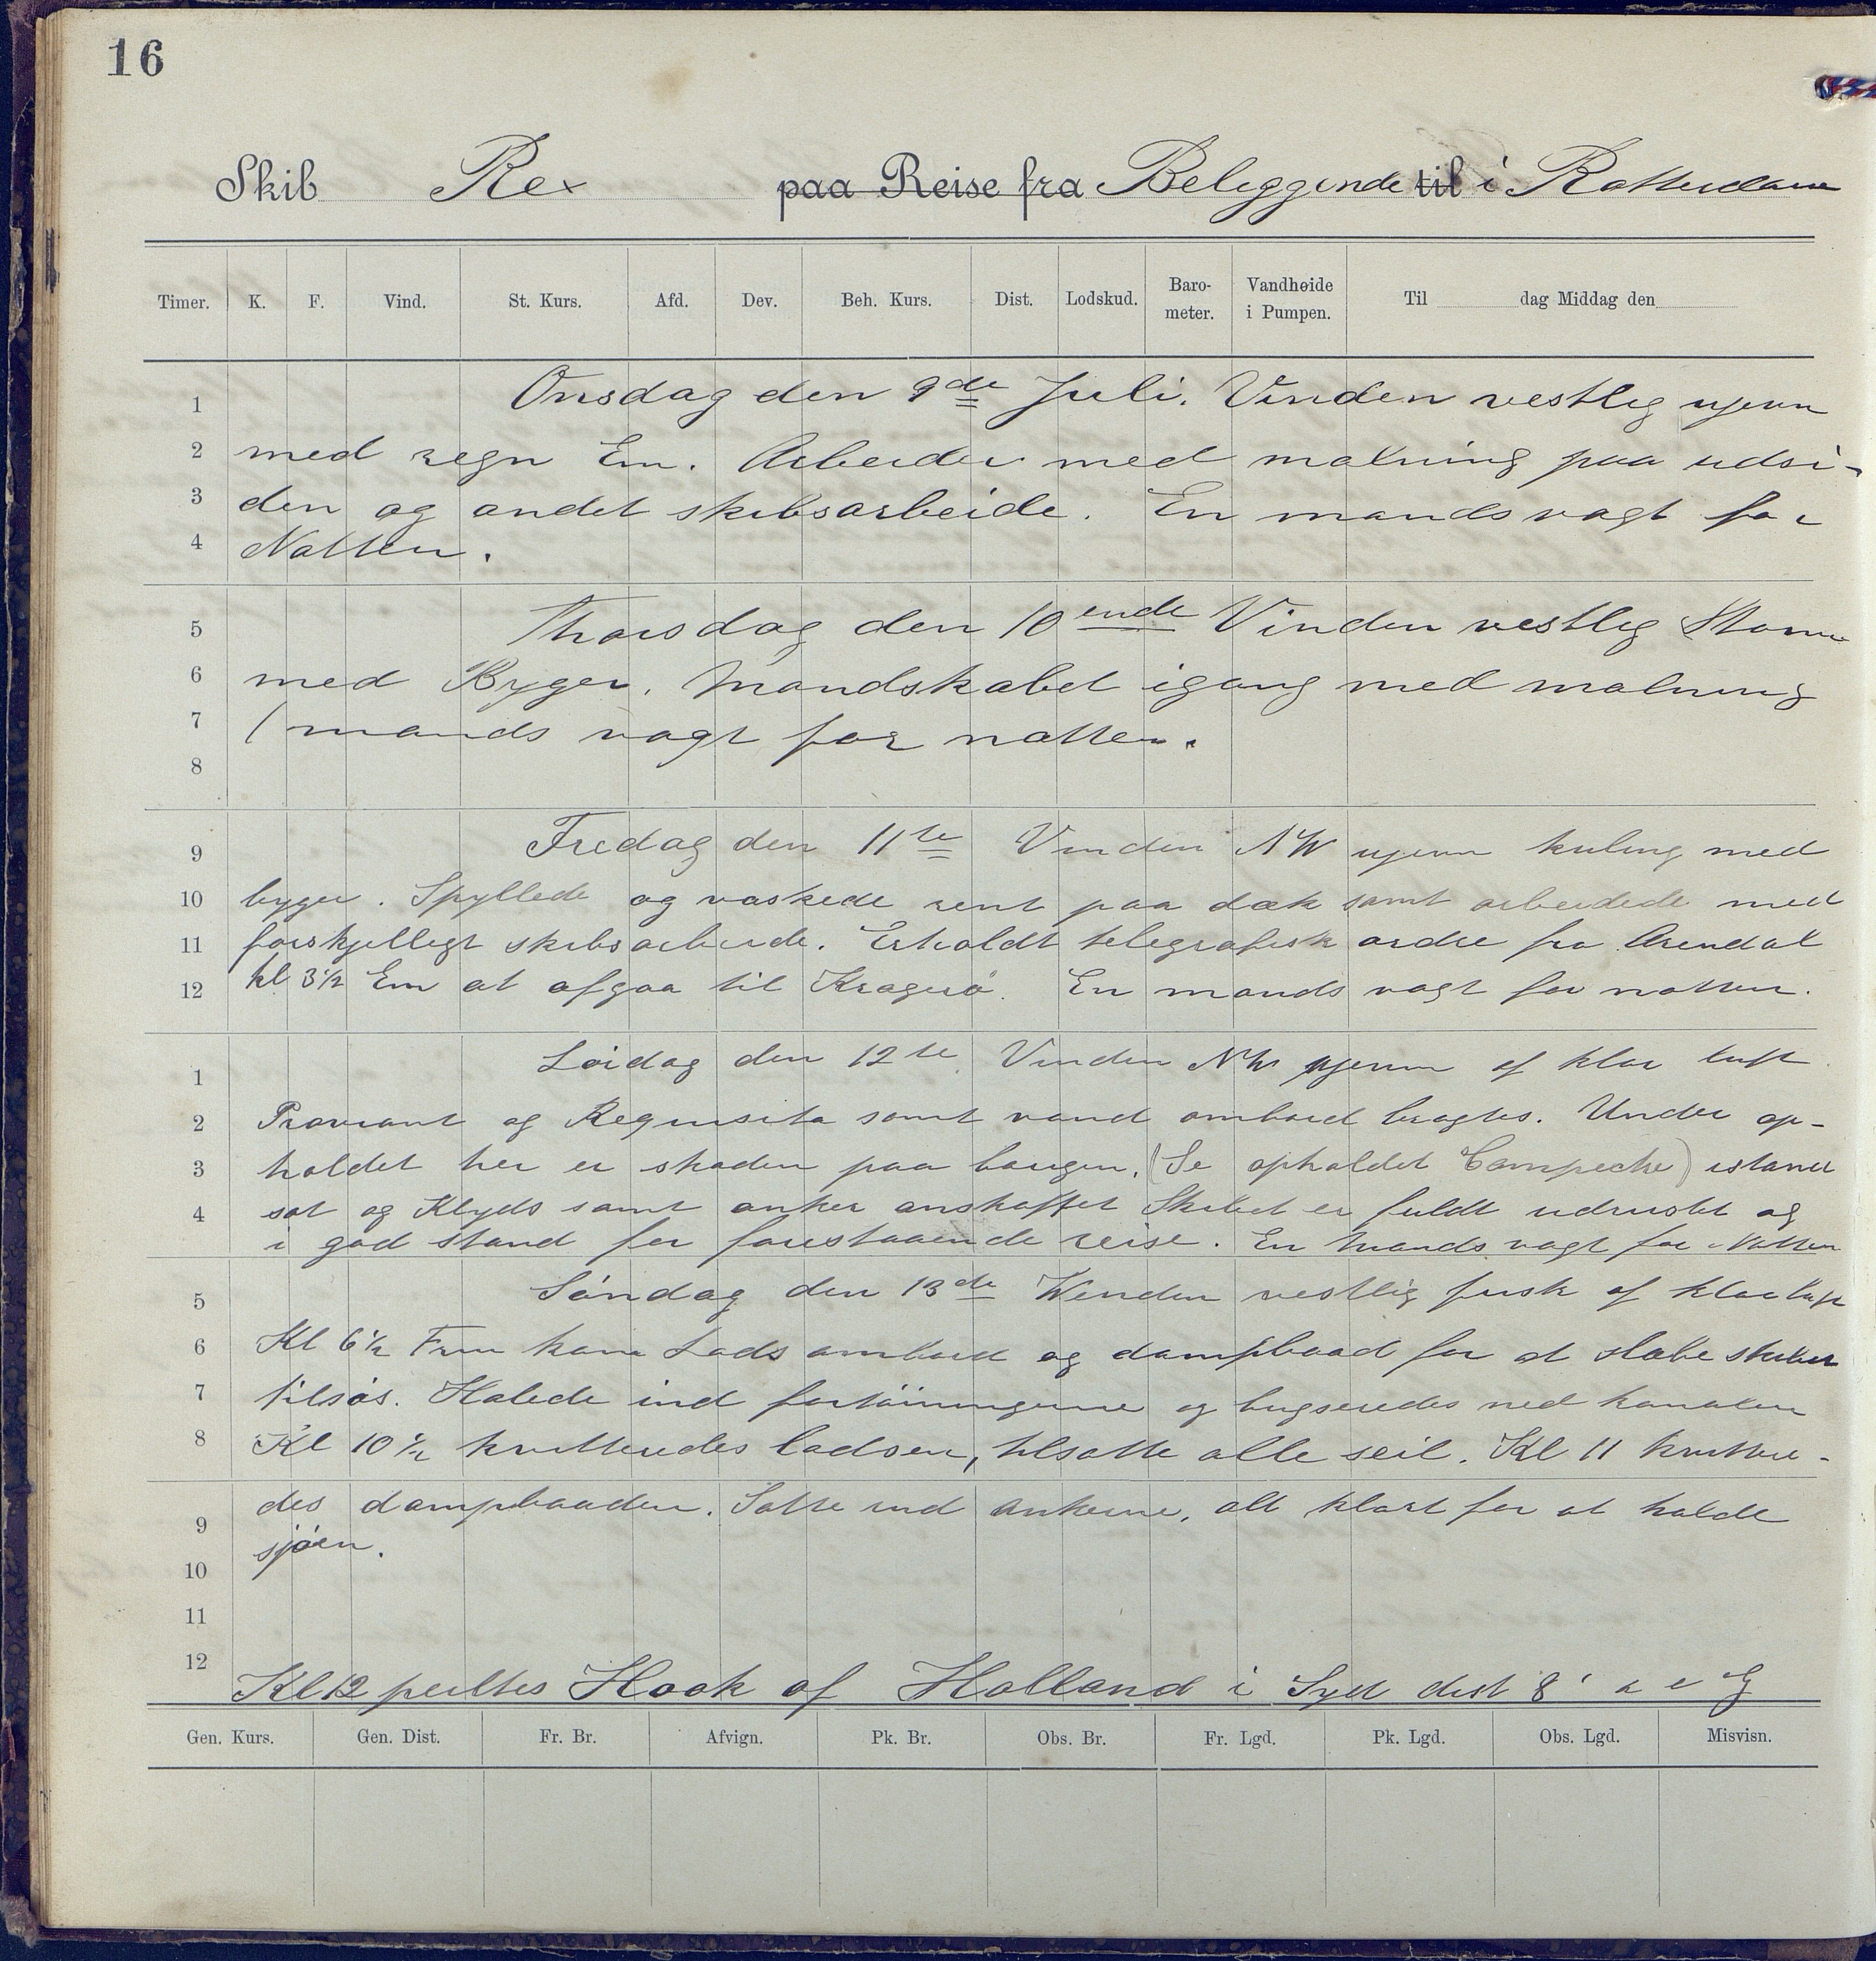 16
Skib Rex paa Reise fra Beliggende til i Rotterdam
Timer. K. F. Vind. St. Kurs. Afd. Dev. Beh. Kurs. Dist. Lodskud. Baro-meter. Vandhøide i Pumpen. Til dag Middag den
1 Onsdag den 9de Juli. Vinden vestlig ujevn
2 med regn Em. Arbeider med malning paa udsi-
3 den og andet skibsarbeide. En mands vagt for
4 Natten.
5 Thorsdag den 10ende Vinden vestlig Storm
6 med Byger. Mandskabet igang med malning
7 1 mands vagt for natten.
8
9 Fredag den 11te Vinden NW ujevn kuling med
10 byger. Spyllede og vaskede rent paa dæk samt arbeidede med
11 forskjelligt skibsarbeide. Erholdt telegrafisk ordre fra Arendal
12 kl 3½ Em at afgaa til Kragerö. En mands vagt for natten.
1 Löidag den 12te Vinden NW ujevn af klar luft
2 Proviant og Requisita samt vand ombord bragtes. Under op-
3 holdet her er skaden paa bougen, (Se opholdet Campeche) istand
4 sat og Klyds samt anker anskaffet Skibet er fuldt udrustet og
i god stand for forestaaende reise. En Mands vagt for Natten
5 Söndag den 13de Winden vestlig frisk af klar luft
6 Kl 6½ Fm kom Lods ombord og dampbaad for at slæbe skibet
7 tilsös. Halede ind fortöiningerne og bugseredes ned kanalen
8 Kl 10½ kvitteredes lodsen, tilsatte alle seil. Kl 11 kvittere-
9 des dampbaaden. Satte ind ankerne, alt klart for at holde
sjöen.
10
11
12
Kl 12 peiltes Hook of Holland i Syd dist 8'
Gen. Kurs. Gen. Dist. Fr. Br. Afvign. Pk. Br. Obs. Br. Fr. Lgd. Pk. Lgd. Obs. Lgd. Misvisn.